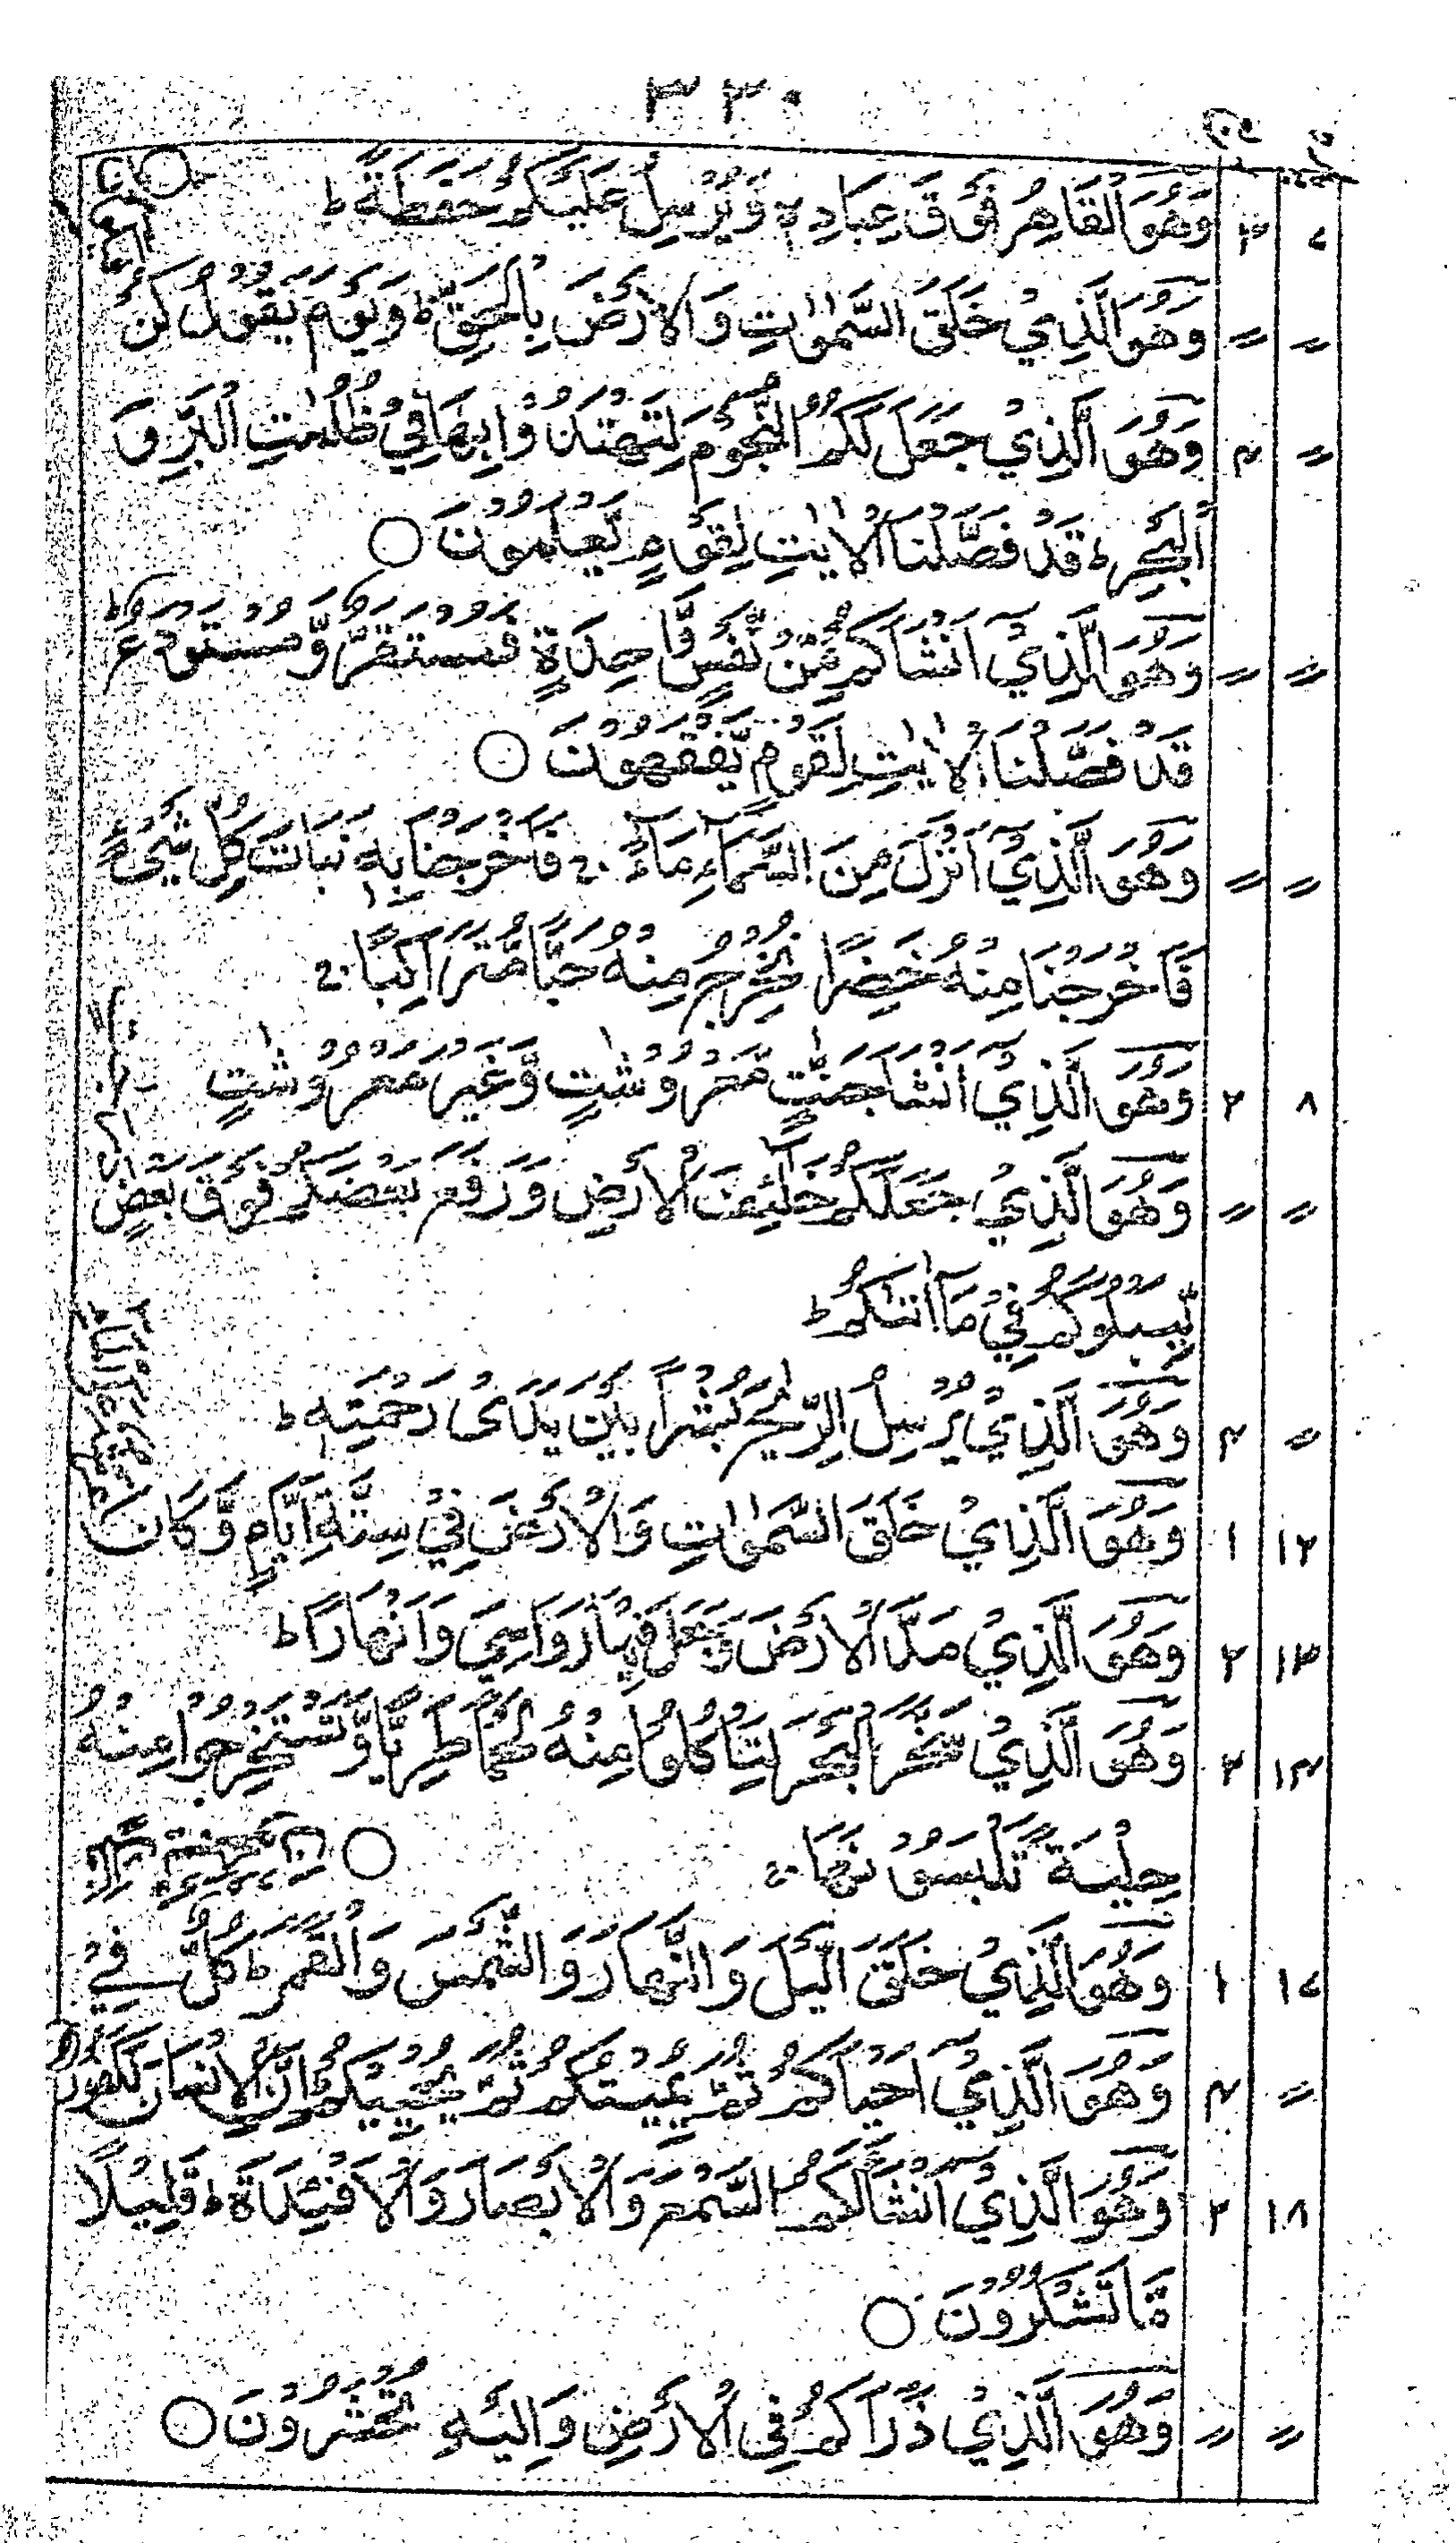 ۳۳۰
۷ ۳ وَهُوَ الْقَاهِرُ فَوْقَ عِبَادِهٖ وَيُرْسِلُ عَلَيْكُمْ حَفَظَةً ؕ
〃 〃 وَهُوَ الَّذِيْ خَلَقَ السَّمٰوٰتِ وَالْاَرْضَ بِالْحَقِّ ؕ وَيَوْمَ يَقُوْلُ كُنْ
〃 ۴ وَهُوَ الَّذِيْ جَعَلَ لَكُمُ النُّجُوْمَ لِتَهْتَدُوْا بِهَا فِيْ ظُلُمٰتِ الْبَرِّ وَ
الْبَحْرِ ؕ قَدْ فَصَّلْنَا الْاٰيٰتِ لِقَوْمٍ يَّعْلَمُوْنَ ○
〃 〃 وَهُوَ الَّذِيْۤ اَنْشَاَكُمْ مِّنْ نَّفْسٍ وَّاحِدَةٍ فَمُسْتَقَرٌّ وَّمُسْتَوْدَعٌ ؕ
قَدْ فَصَّلْنَا الْاٰيٰتِ لِقَوْمٍ يَّفْقَهُوْنَ ○
〃 〃 وَهُوَ الَّذِيْۤ اَنْزَلَ مِنَ السَّمَآءِ مَآءً ۚ فَاَخْرَجْنَا بِهٖ نَبَاتَ كُلِّ شَيْءٍ
فَاَخْرَجْنَا مِنْهُ خَضِرًا نُّخْرِجُ مِنْهُ حَبًّا مُّتَرَاكِبًا ۚ
۸ ۲ وَهُوَ الَّذِيْۤ اَنْشَاَ جَنّٰتٍ مَّعْرُوْشٰتٍ وَّغَيْرَ مَعْرُوْشٰتٍ
〃 〃 وَهُوَ الَّذِيْ جَعَلَكُمْ خَلٰٓئِفَ الْاَرْضِ وَرَفَعَ بَعْضَكُمْ فَوْقَ بَعْضٍ
لِّيَبْلُوَكُمْ فِيْ مَاۤ اٰتٰىكُمْ ؕ
〃 ۴ وَهُوَ الَّذِيْ يُرْسِلُ الرِّيٰحَ بُشْرًاۢ بَيْنَ يَدَيْ رَحْمَتِهٖ ؕ
۱۲ ۱ وَهُوَ الَّذِيْ خَلَقَ السَّمٰوٰتِ وَالْاَرْضَ فِيْ سِتَّةِ اَيَّامٍ وَّكَانَ
۱۳ ۲ وَهُوَ الَّذِيْ مَدَّ الْاَرْضَ وَجَعَلَ فِيْهَا رَوَاسِيَ وَاَنْهَارًا ؕ
۱۴ ۲ وَهُوَ الَّذِيْ سَخَّرَ الْبَحْرَ لِتَاْكُلُوْا مِنْهُ لَحْمًا طَرِيًّا وَّتَسْتَخْرِجُوْا مِنْهُ
حِلْيَةً تَلْبَسُوْنَهَا ۚ ○
۱۷ ۱ وَهُوَ الَّذِيْ خَلَقَ الَّيْلَ وَالنَّهَارَ وَالشَّمْسَ وَالْقَمَرَ ؕ كُلٌّ فِيْ
〃 ۴ وَهُوَ الَّذِيْۤ اَحْيَاكُمْ ثُمَّ يُمِيْتُكُمْ ثُمَّ يُحْيِيْكُمْ ؕ اِنَّ الْاِنْسَانَ لَكَفُوْرٌ
۱۸ ۲ وَهُوَ الَّذِيْۤ اَنْشَاَ لَكُمُ السَّمْعَ وَالْاَبْصَارَ وَالْاَفْئِدَةَ ؕ قَلِيْلًا
مَّا تَشْكُرُوْنَ ○
〃 〃 وَهُوَ الَّذِيْ ذَرَاَكُمْ فِي الْاَرْضِ وَاِلَيْهِ تُحْشَرُوْنَ ○